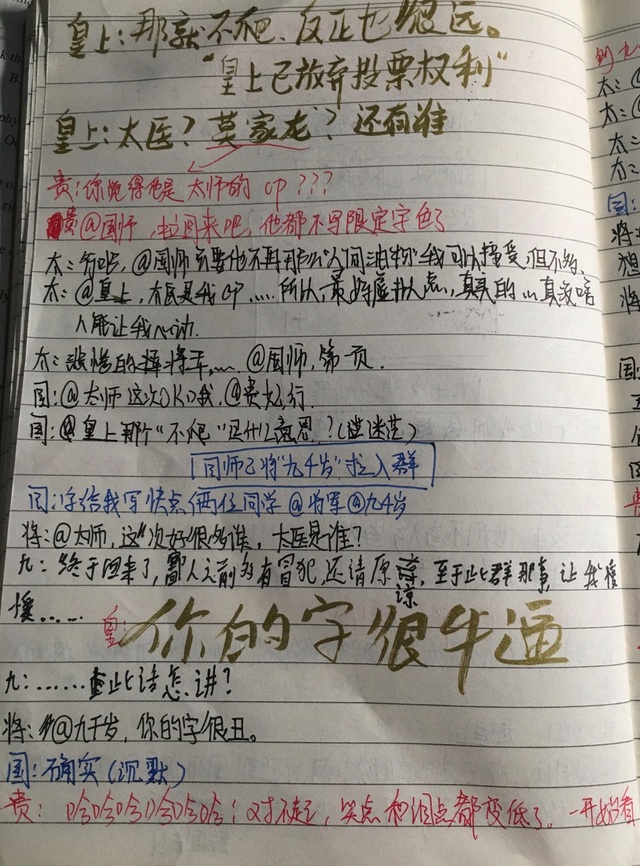 皇上：那就不爬、反正也很远。
“皇上已放弃投票权利”
皇上：太医？莫家龙？还有谁
贵：你觉得他是太师的cp？？？
贵@国师，拉回来吧，他都不写限定字色了
太：行吧，@国师 只要他不再用“人间油物”我可以接受，但不够
太：@皇上，不是我cp……所以，最好虚拟人点，真真的…真没啥
人能让我心动.
太：谈谈的择将军…… @国师，第一页.
国：@太师 这次OK了我，@贵妃行.
国：@皇上 那个“不爬”是什么意思？(迷迷茫)
国师已将“九千岁”拉入群
国：字给我写快点 俩位同学 @将军 @九千岁
将：@太师，这次好很多谁，太医是谁？
九：终于回来了，鄙人之前多有冒犯，还请原谅，至于此群那事，让我慢
慢……
皇：你的字很牛逼
九：……此话怎讲？
将：@九千岁，你的字很丑。
国：确实(沉默)
贵：哈哈哈哈哈哈；对不起，笑点和泪点都变低了，一开始看